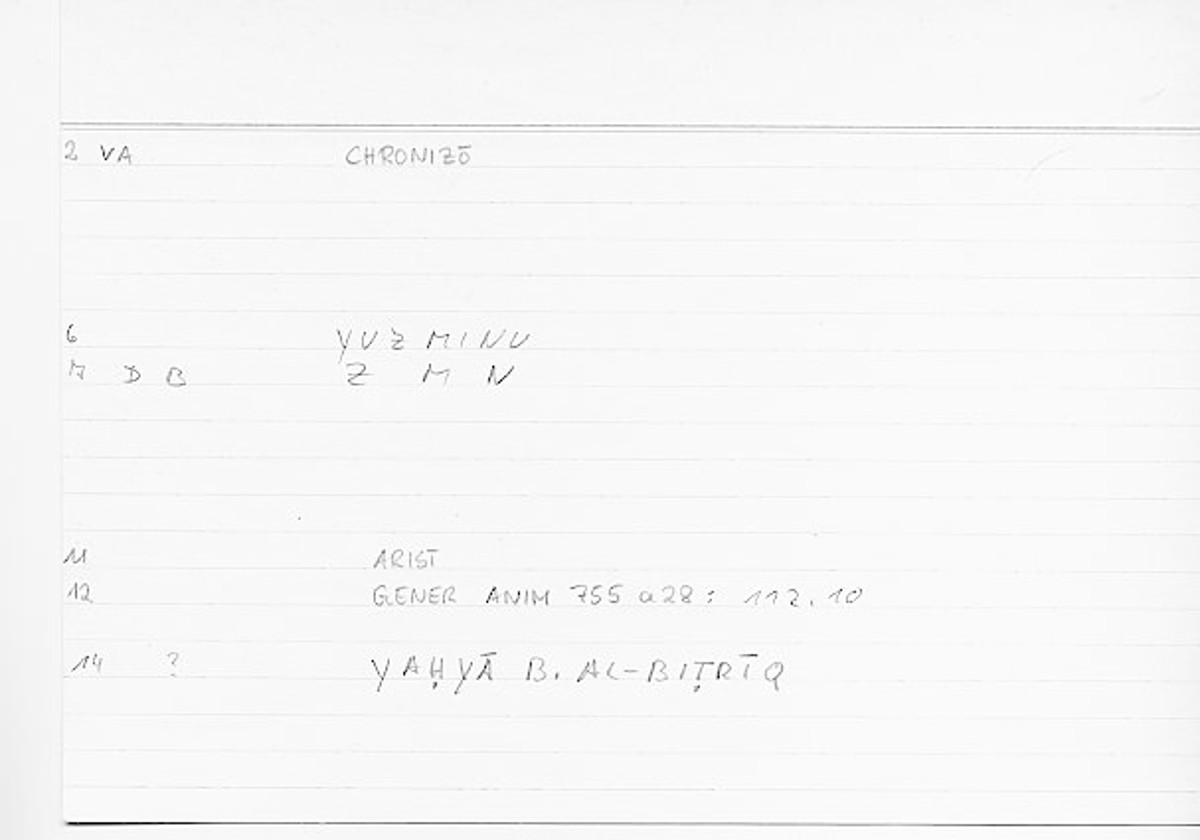 2 VA CHRONIZŌ
6 YUZMINU
7 D B Z M N
11 ARIST
12 GENER ANIM 755 a28 : 112.10
14 ? YAḤYĀ B. AL-BIṬRĪQ